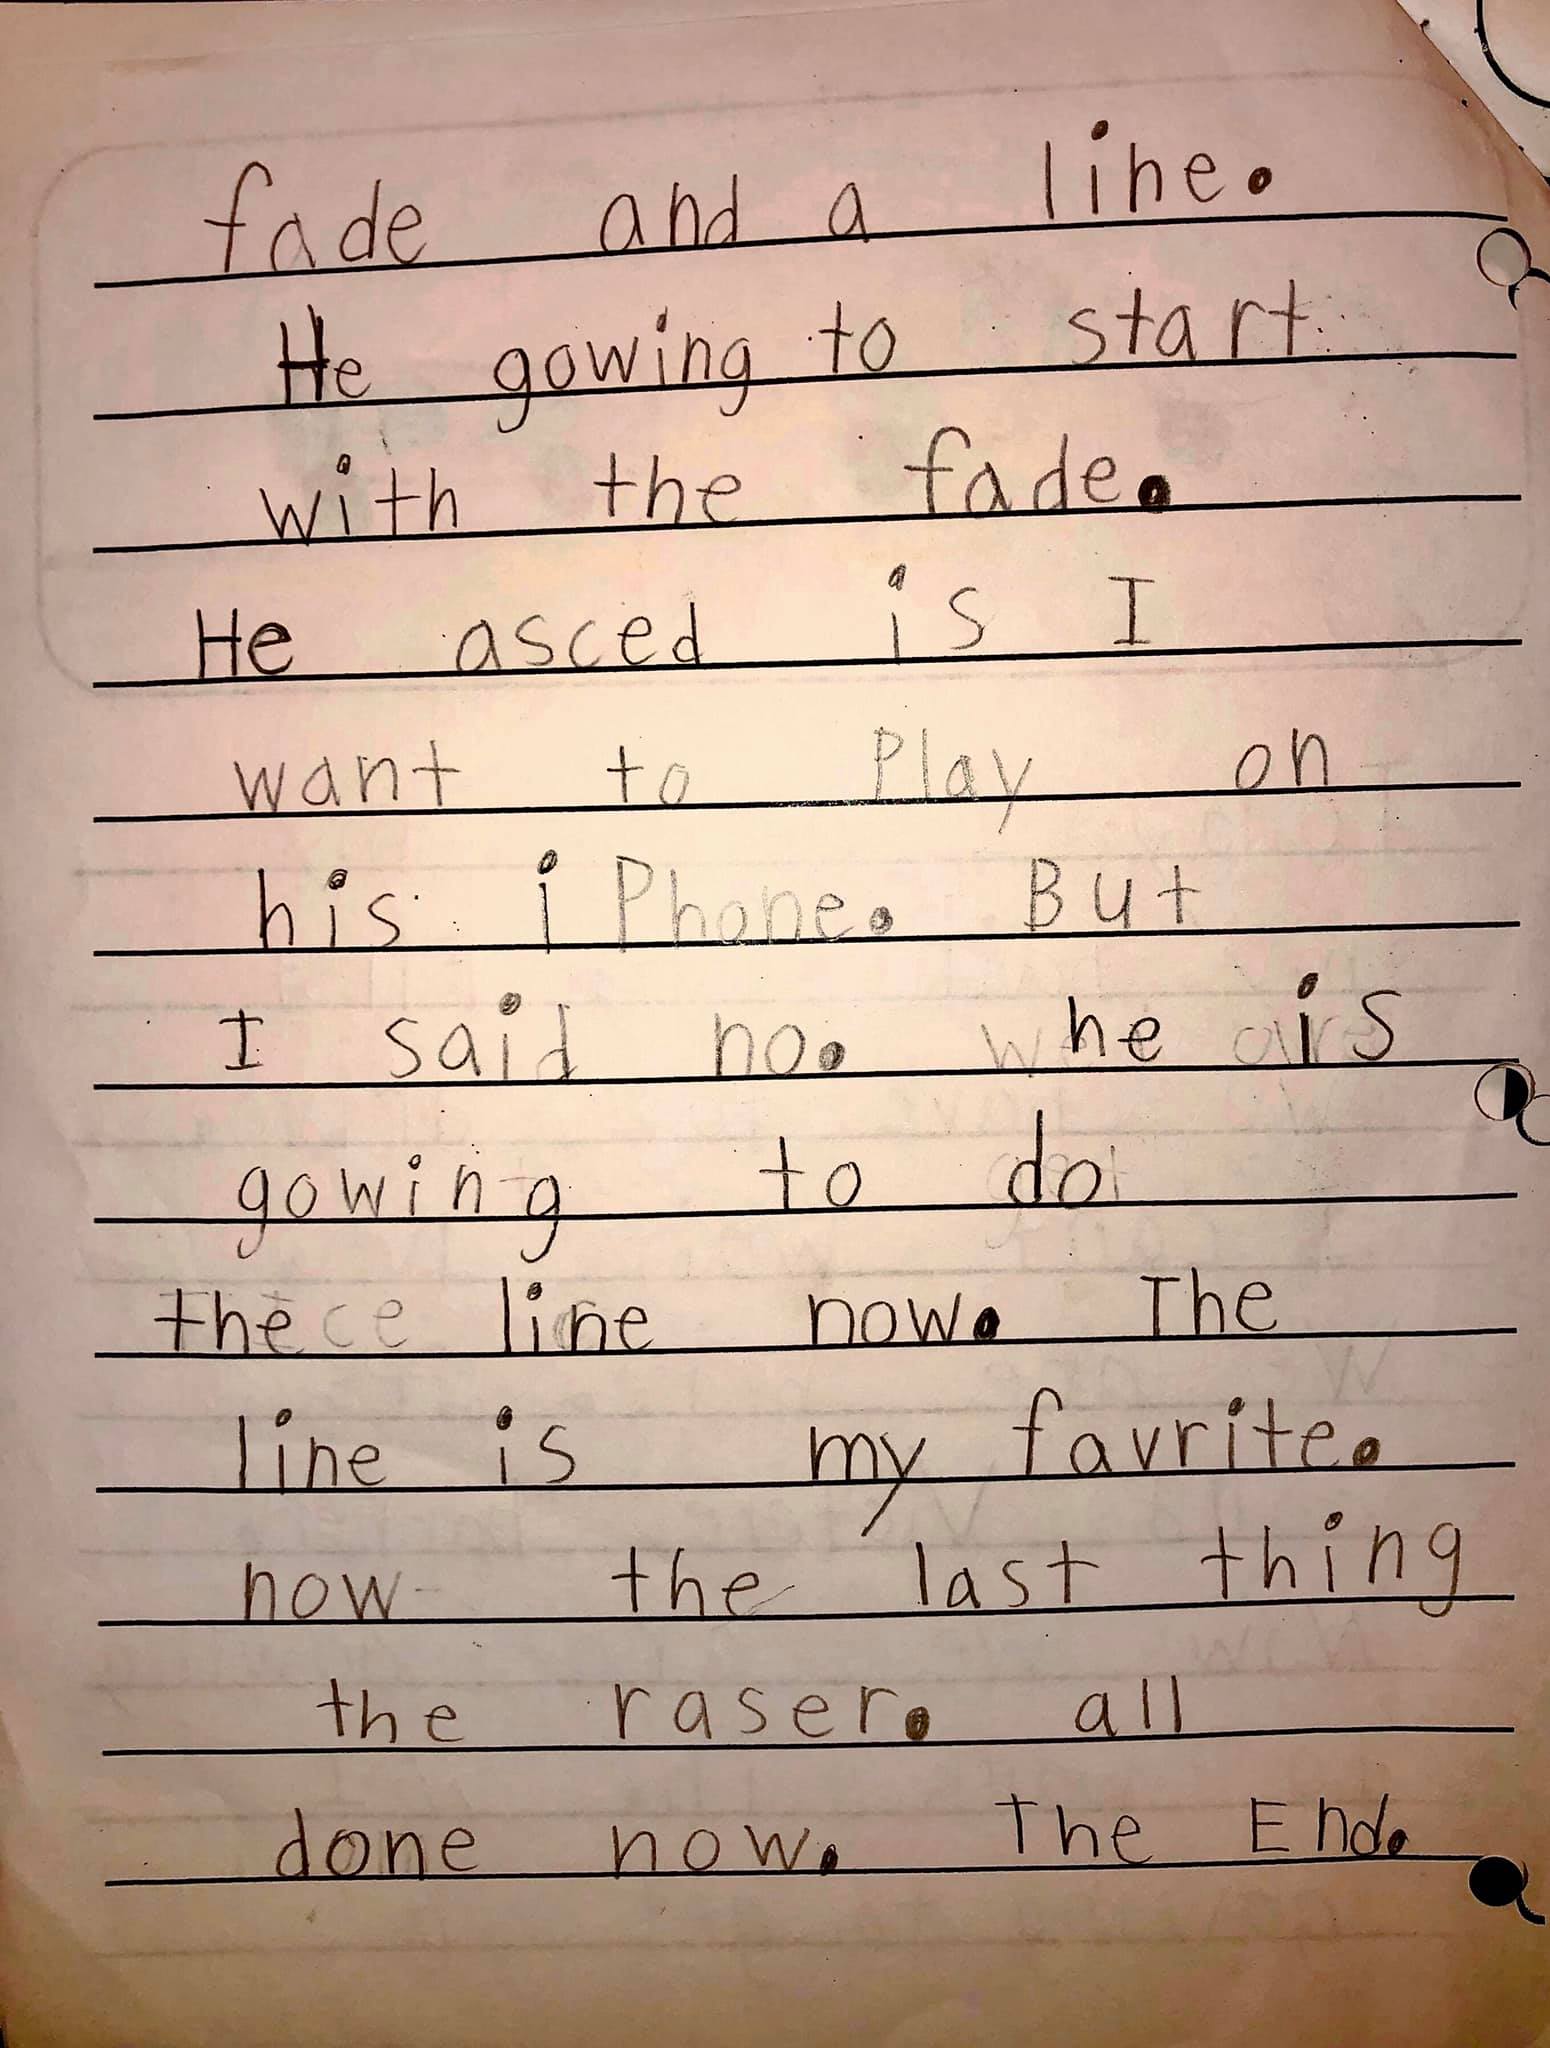 fade and a line.
He gowing to start
with the fade.
He asced is I
want to Play on
his i Phone. But
I said no. he is
gowing to do
the line now. The
line is my favrite.
now the last thing
the raser. all
done now. The End.